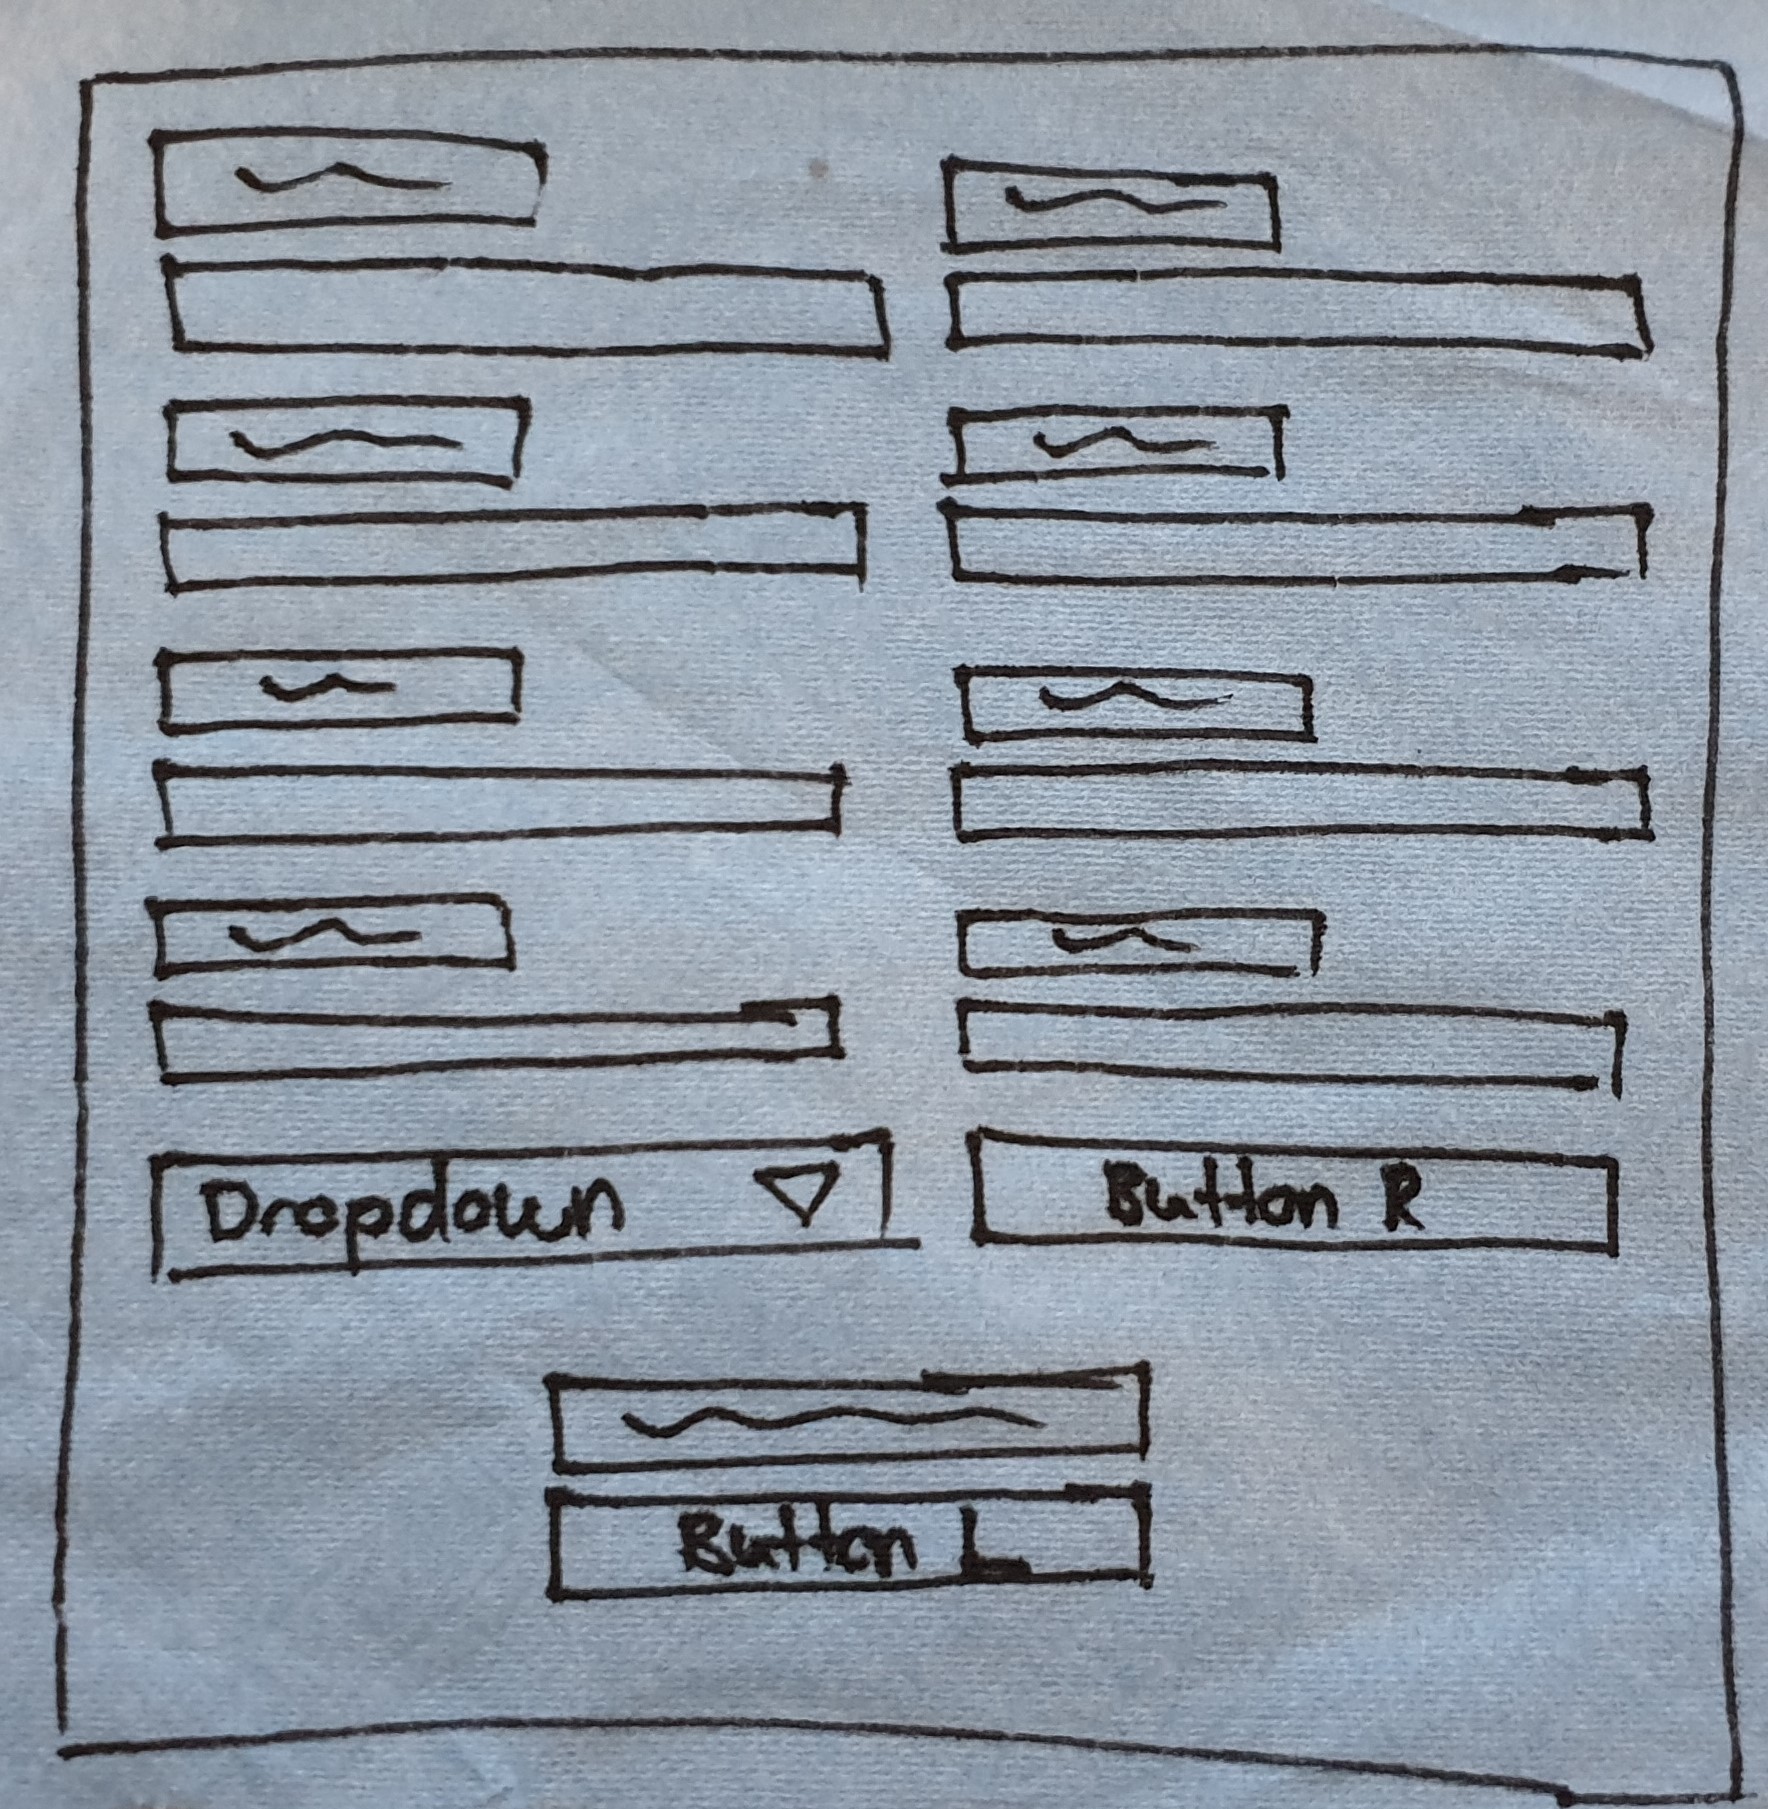 Dropdown
Button R
Button L